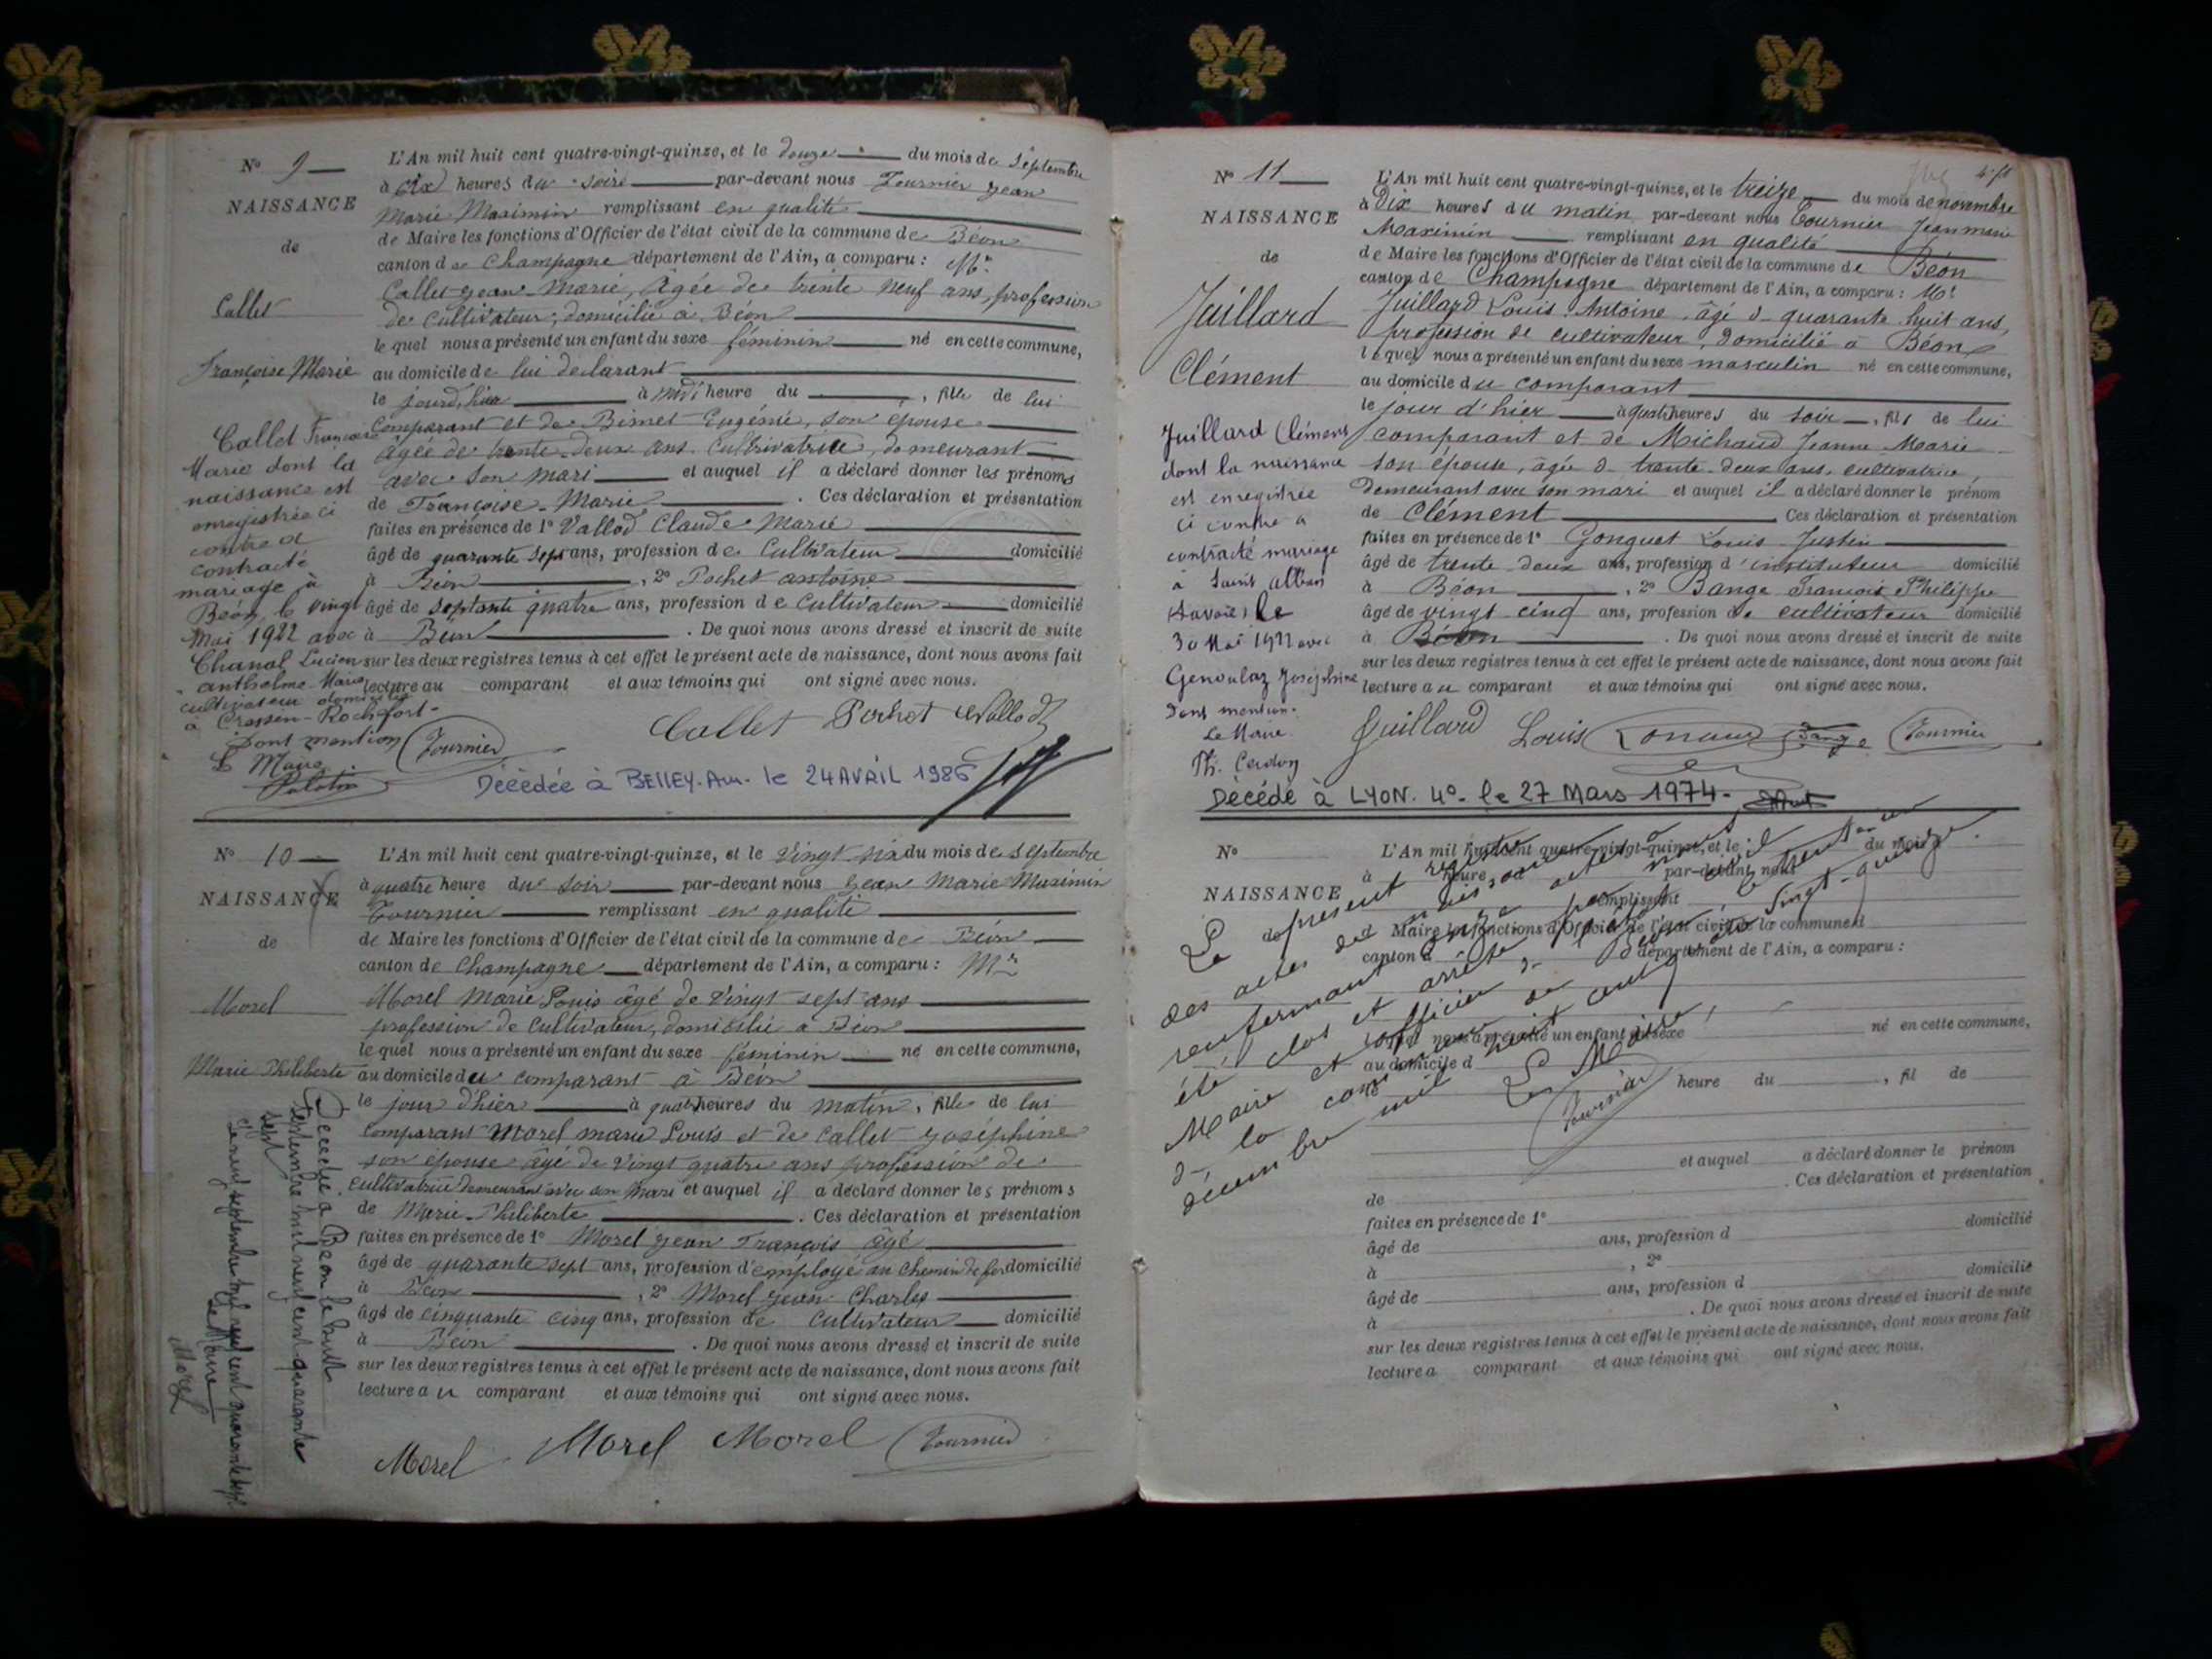 N° 9
NAISSANCE
de
Callet
Françoise Marie
L'An mil huit cent quatre-vingt-quinze, et le douze du mois de Septembre
à dix heures du soire par-devant nous Tournier Jean
Marie Maximin remplissant en qualité
de Maire les fonctions d'Officier de l'état civil de la commune de Béon
canton de Champagne département de l'Ain, a comparu : Mr.
Callet Jean-Marie, âgée de trente neuf ans, profession
de Cultivateur, domicilié à Béon
le quel nous a présenté un enfant du sexe féminin né en cette commune,
au domicile de lui declarant
le jourd,hier à midi heure du , fille de lui
Comparant et de Bimet Eugénie, son épouse
âgée de trente-deux ans. Cultivatrice, demeurant
avec son mari et auquel il a déclaré donner les prénoms
de Françoise-Marie . Ces déclaration et présentation
faites en présence de 1° Vallod Claude Marie
âgé de quarante sept ans, profession de Cultivateur domicilié
à Béon , 2° Pochet antoine
âgé de septante quatre ans, profession de Cultivateur domicilié
à Béon . De quoi nous avons dressé et inscrit de suite
sur les deux registres tenus à cet effet le présent acte de naissance, dont nous avons fait
lecture au comparant et aux témoins qui ont signé avec nous.
Callet Pochet Vallod
Tournier
Callet Françoise
Marie dont la
naissance est
enregistrée ci
contre a
contracté
mariage à
Béon, le vingt
Mai 1922 avec
Chanal Lucien
anthelme Marie
cultivateur domicilié
à Cressin-Rochefort-
Dont mention
Le Maire
Décédée à BELLEY. Ain. le 24 AVRIL 1986
N° 10
NAISSANCE
de
Morel
Marie Philiberte
L'An mil huit cent quatre-vingt-quinze, et le Vingt-six du mois de Septembre
à quatre heure du soir par-devant nous Jean Marie Maximin
Tournier remplissant en qualité
de Maire les fonctions d'Officier de l'état civil de la commune de Béon
canton de Champagne département de l'Ain, a comparu : Mr
Morel Marie Louis âgé de Vingt sept ans
profession de Cultivateur, domicilié à Béon
le quel nous a présenté un enfant du sexe féminin né en cette commune,
au domicile du comparant à Béon
le jour d'hier à quatre heures du matin, fille de lui
Comparant Morel marie Louis et de Callet Joséphine
son épouse âgé de Vingt quatre ans profession de
Cultivatrice demeurant avec son mari et auquel il a déclaré donner les prénoms
de Marie-Philiberte . Ces déclaration et présentation
faites en présence de 1° Morel Jean François âgé
âgé de quarante sept ans, profession d'employé au Chemin de fer domicilié
à Béon , 2° Morel Jean Charles
âgé de cinquante cinq ans, profession de Cultivateur domicilié
à Béon . De quoi nous avons dressé et inscrit de suite
sur les deux registres tenus à cet effet le présent acte de naissance, dont nous avons fait
lecture au comparant et aux témoins qui ont signé avec nous.
Morel Morel Morel Tournier
Décédée à Béon le huit
septembre mil neuf cent quarante
sept
le neuf septembre mil neuf cent quarante sept
Le Maire
Morel
N° 11
NAISSANCE
de
Juillard
Clément
L'An mil huit cent quatre-vingt-quinze, et le treize du mois de novembre
à Dix heures du matin par-devant nous Tournier Jean marie
Maximin remplissant en qualité
de Maire les fonctions d'Officier de l'état civil de la commune de Béon
canton de Champagne département de l'Ain, a comparu : Mr
Juillard Louis Antoine, âgé de quarante huit ans,
profession de cultivateur, domicilié à Béon
lequel nous a présenté un enfant du sexe masculin né en cette commune,
au domicile du comparant
le jour d'hier à quatre heures du soir , fils de lui
comparant et de Michaud Jeanne Marie
son épouse, âgée de trente-deux ans, cultivatrice,
demeurant avec son mari et auquel il a déclaré donner le prénom
de Clément . Ces déclaration et présentation
faites en présence de 1° Gonguet Louis Justin
âgé de trente deux ans, profession d'instituteur domicilié
à Béon , 2° Bange François Philippe
âgé de vingt cinq ans, profession de cultivateur domicilié
à Béon . De quoi nous avons dressé et inscrit de suite
sur les deux registres tenus à cet effet le présent acte de naissance, dont nous avons fait
lecture au comparant et aux témoins qui ont signé avec nous.
Juillard Louis Bange Tournier
Juillard Clément
dont la naissance
est enregistrée
ci contre a
contracté mariage
à Saint Alban
(Savoie) le
30 Mai 1922 avec
Genoulaz Joséphine
Dont mention.
Le Maire
Décédé à LYON. 4°. le 27 Mars 1974.
N°
NAISSANCE
de
L'An mil huit cent quatre-vingt-quinze, et le du mois d
à heure d par-devant nous
remplissant
d Maire les fonctions d'Officier de l'état civil de la commune d
canton d département de l'Ain, a comparu :
le quel nous a présenté un enfant du sexe né en cette commune,
au domicile d
heure du , fil de
et auquel a déclaré donner le prénom
de . Ces déclaration et présentation
faites en présence de 1°
âgé de ans, profession d domicilié
à , 2°
âgé de ans, profession d domicilié
à . De quoi nous avons dressé et inscrit de suite
sur les deux registres tenus à cet effet le présent acte de naissance, dont nous avons fait
lecture a comparant et aux témoins qui ont signé avec nous.
Le présent registre
des actes de naissance
renfermant onze actes a
été clos et arrêté par nous,
Maire et officier de l'état civil
de la commune de Béon, le trente un
décembre mil huit cent quatre vingt-quinze.
Le Maire,
Tournier